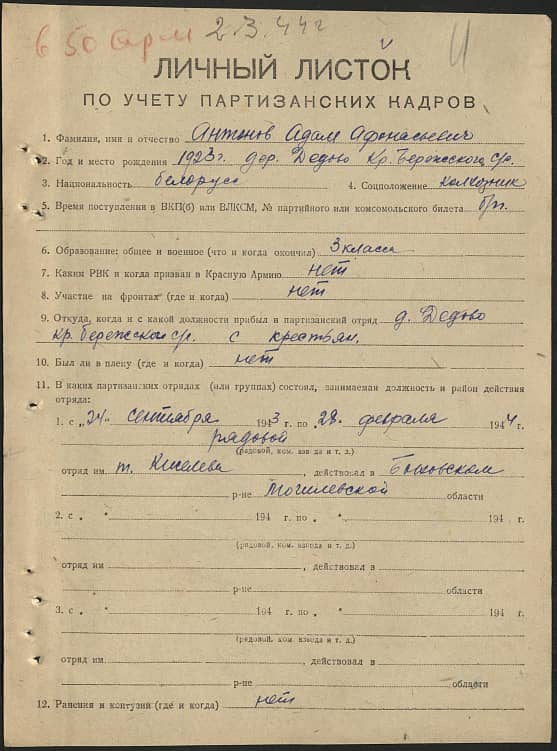 в 50 арм 2.3.44 г
ЛИЧНЫЙ ЛИСТОК
ПО УЧЕТУ ПАРТИЗАНСКИХ КАДРОВ
1. Фамилия, имя и отчество Антонов Адам Афонасьевич
2. Год и место рождения 1923 г. дер. Дедово Кр. Бережского с/с.
3. Национальность белорусс 4. Соцположение колхозник
5. Время поступления в ВКП(б) или ВЛКСМ, № партийного или комсомольского билета б/п.
6. Образование: общее и военное (что и когда окончил) 3 класса
7. Каким РВК и когда призван в Красную Армию нет
8. Участие на фронтах (где и когда) нет
9. Откуда, когда и с какой должности прибыл в партизанский отряд д. Дедово
Кр. бережской с/с. с крестьян.
10. Был ли в плену (где и когда) нет
11. В каких партизанских отрядах (или группах) состоял, занимаемая должность и район действия
отряда:
1. с „24" сентября 1943 г. по „28" февраля 1944 г.
рядовой
(рядовой, ком. взвода и т. д.)
отряд им. т. Киселева, действовал в Быховском
р-не Могилевской области
2. с „ " 194 г. по „ " 194 г.
(рядовой, ком. взвода и т. д.)
отряд им , действовал в
р-не области
3. с „ " 194 г. по „ " 194 г.
(рядовой, ком. взвода и т. д.)
отряд им , действовал в
р-не области
12. Ранения и контузии (где и когда) нет